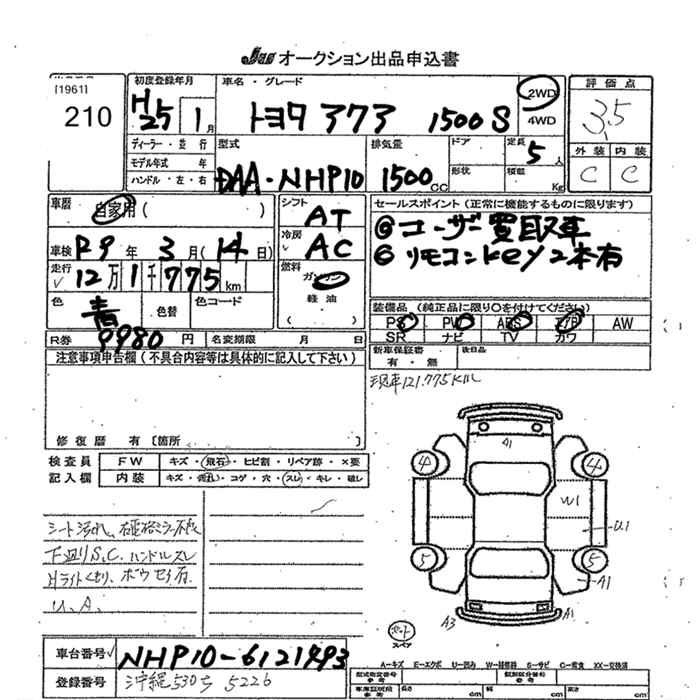 JAA オークション出品申込書
[1961]
210
初度登録年月
H25 1月
車名・グレード
トヨタ アクア 1500S
2WD
4WD
評価点
3.5
外装 内装
C C
ディーラー・並行
モデル年式 年
ハンドル・左・右
型式
DAA-NHP10
排気量
1500cc
ドア
形状
定員
5人
積載
Kg
車歴
自家用(
車検 R9年 3月(14日)
走行 12万1千775km
色 青 色替 色コード
R券 9980円 名変期限 月 日
シフト
AT
冷房
AC
燃料
ガソリン
軽油
セールスポイント(正常に機能するものに限ります)
◎ユーザー買取車
◎リモコンkey2本有
装備品(純正品に限り○を付けてください)
PS PW ABS エアB AW
SR ナビ TV カワ
新車保証書 後日品
有・無
注意事項申告欄(不具合内容等は具体的に記入して下さい)
現車121.775KM
修復歴 有〔箇所 〕
検査員 FW キズ・飛石・ヒビ割・リペア跡・×要
記入欄 内装 キズ・汚れ・コゲ・穴・スレ・キレ・破レ
シート汚れ、
下廻りS.C. ハンドルスレ
Hライトくもり、ボウセイ有.
U.A.
A1
4 4
W1
U1
5 5
A1
A3 A1
スペア
車台番号 NHP10-6121493
登録番号 沖縄530ち5226
A-キズ E-エクボ U-凹み W-補修跡 S-サビ C-腐食 XX-交換済
型式指定番号
類別区分番号
車庫証明用 長さ cm 幅 cm 高さ cm